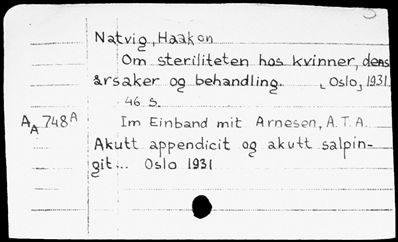 Natvig, Haakon
Om steriliteten hos kvinner, dens
årsaker og behandling. [Oslo] 1931
46 s.
A_A 748 A Im Einband mit Arnesen, A.T.A.
Akutt appendicit og akutt salpin-
git... Oslo 1931